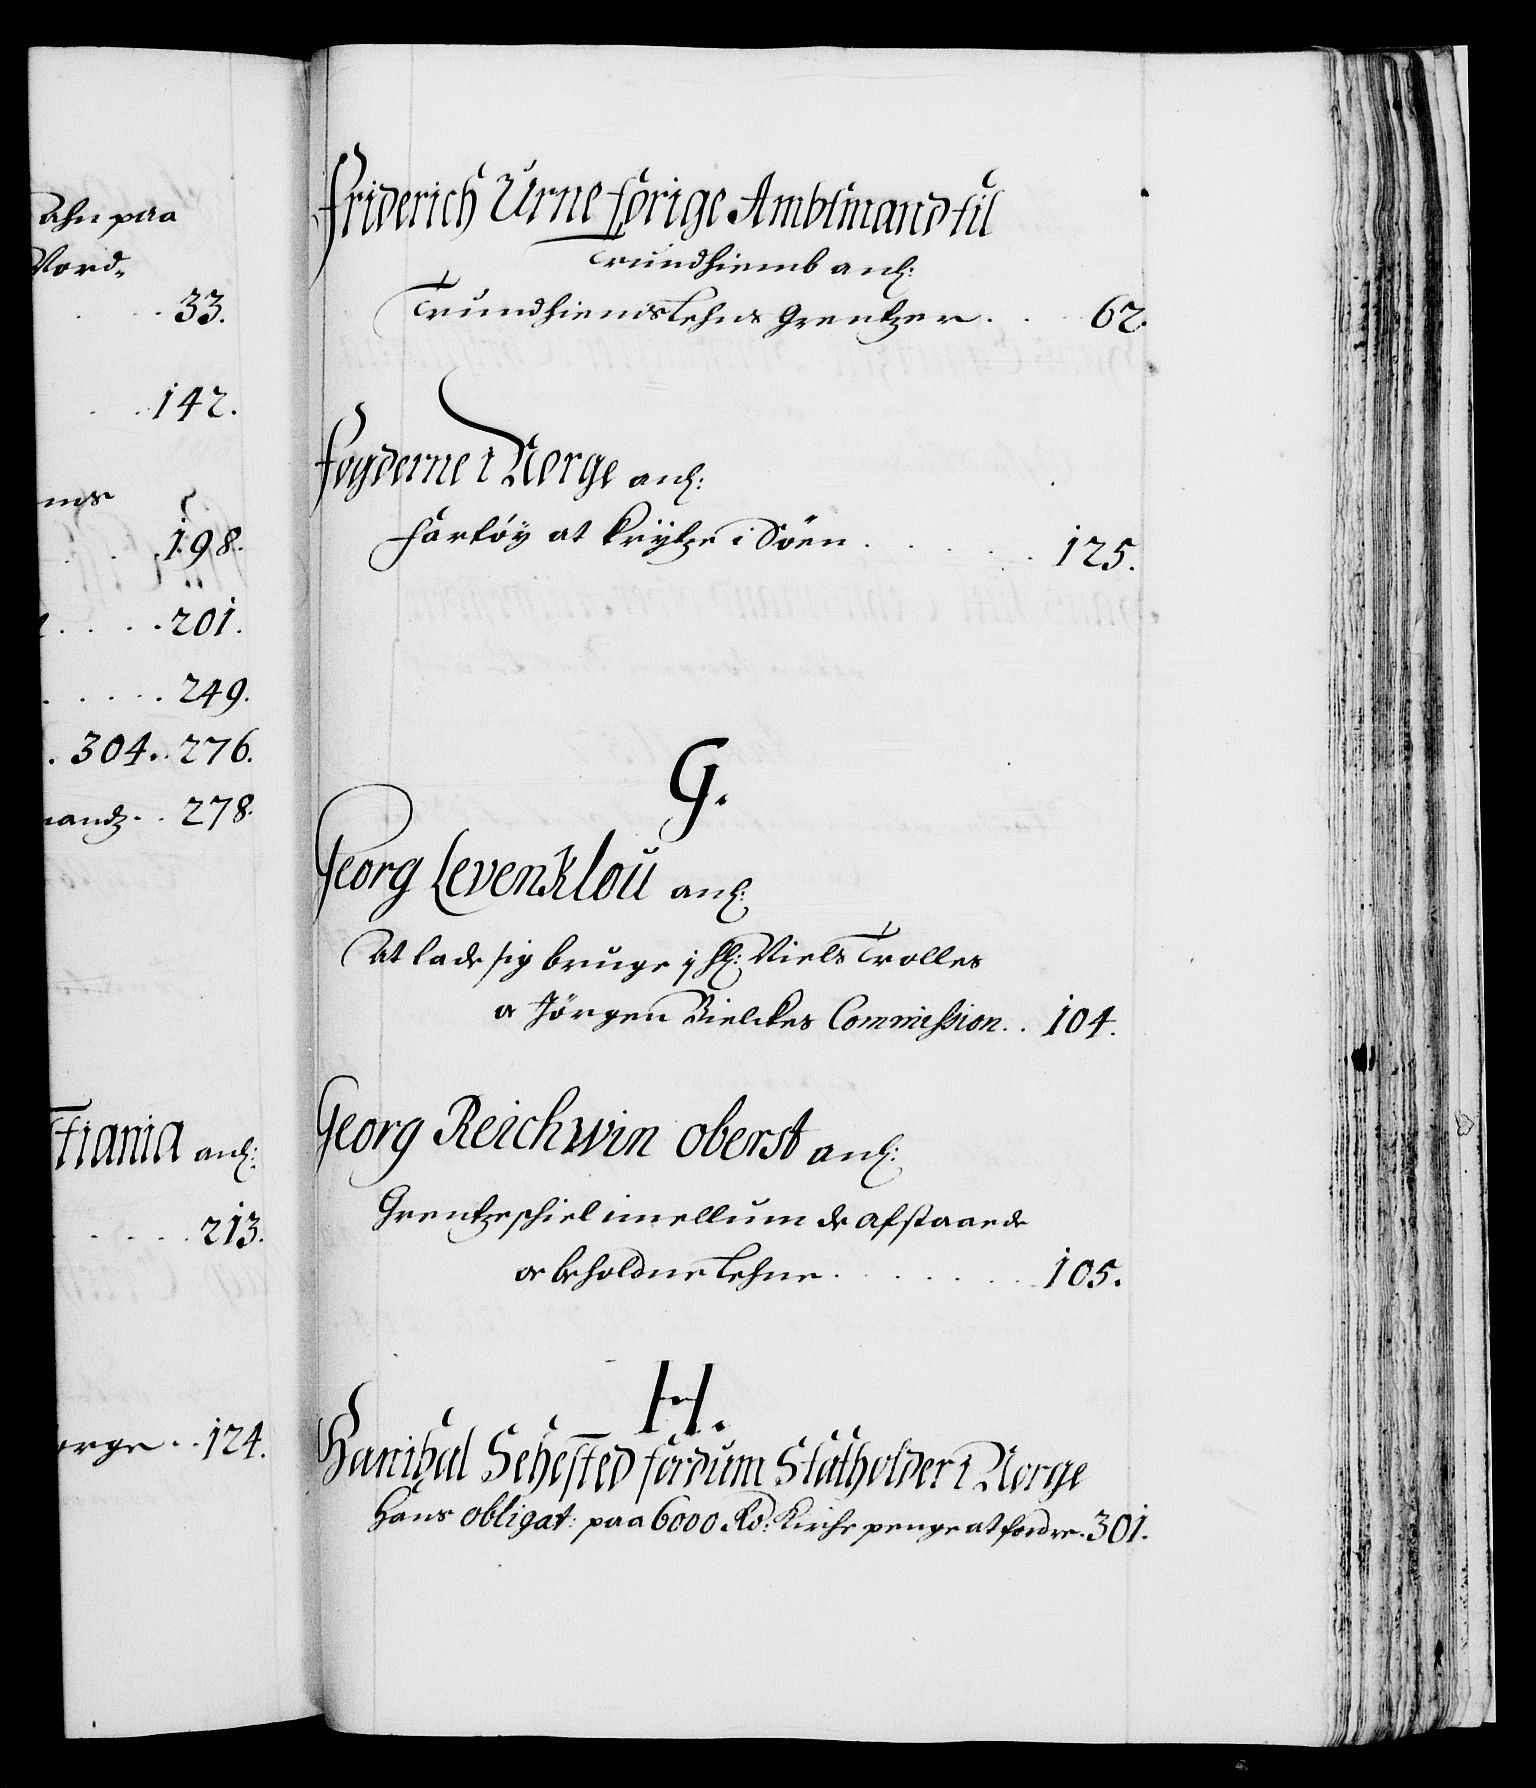 ahn paa
Nord-
33.
142.
ms
198.
201.
249.
304. 276.
mandz. 278.
tiania anl:
213.
orge. 124.
Friderich Urne förige Ambtmand til
Trundhiemb anl:
Trundhiems Lehns Grentzer. 62.
Fogderne i Norge anl:
Fartöÿ at krÿtze i Söen. 125.
G.
Georg Levenklou anl:
At lade sig bruge j Hl: Niels Trolles
oc Jörgen Bielckes Commission. 104.
Georg Reichwin oberst anl:
Grentzeschiel imellum de afstaaede
oc beholdne Lehne. 105.
H.
Hanibal Sehested fordum Statholder i Norge
Hans obligat: paa 6000 Rd: Kirche penge at fordre. 301.